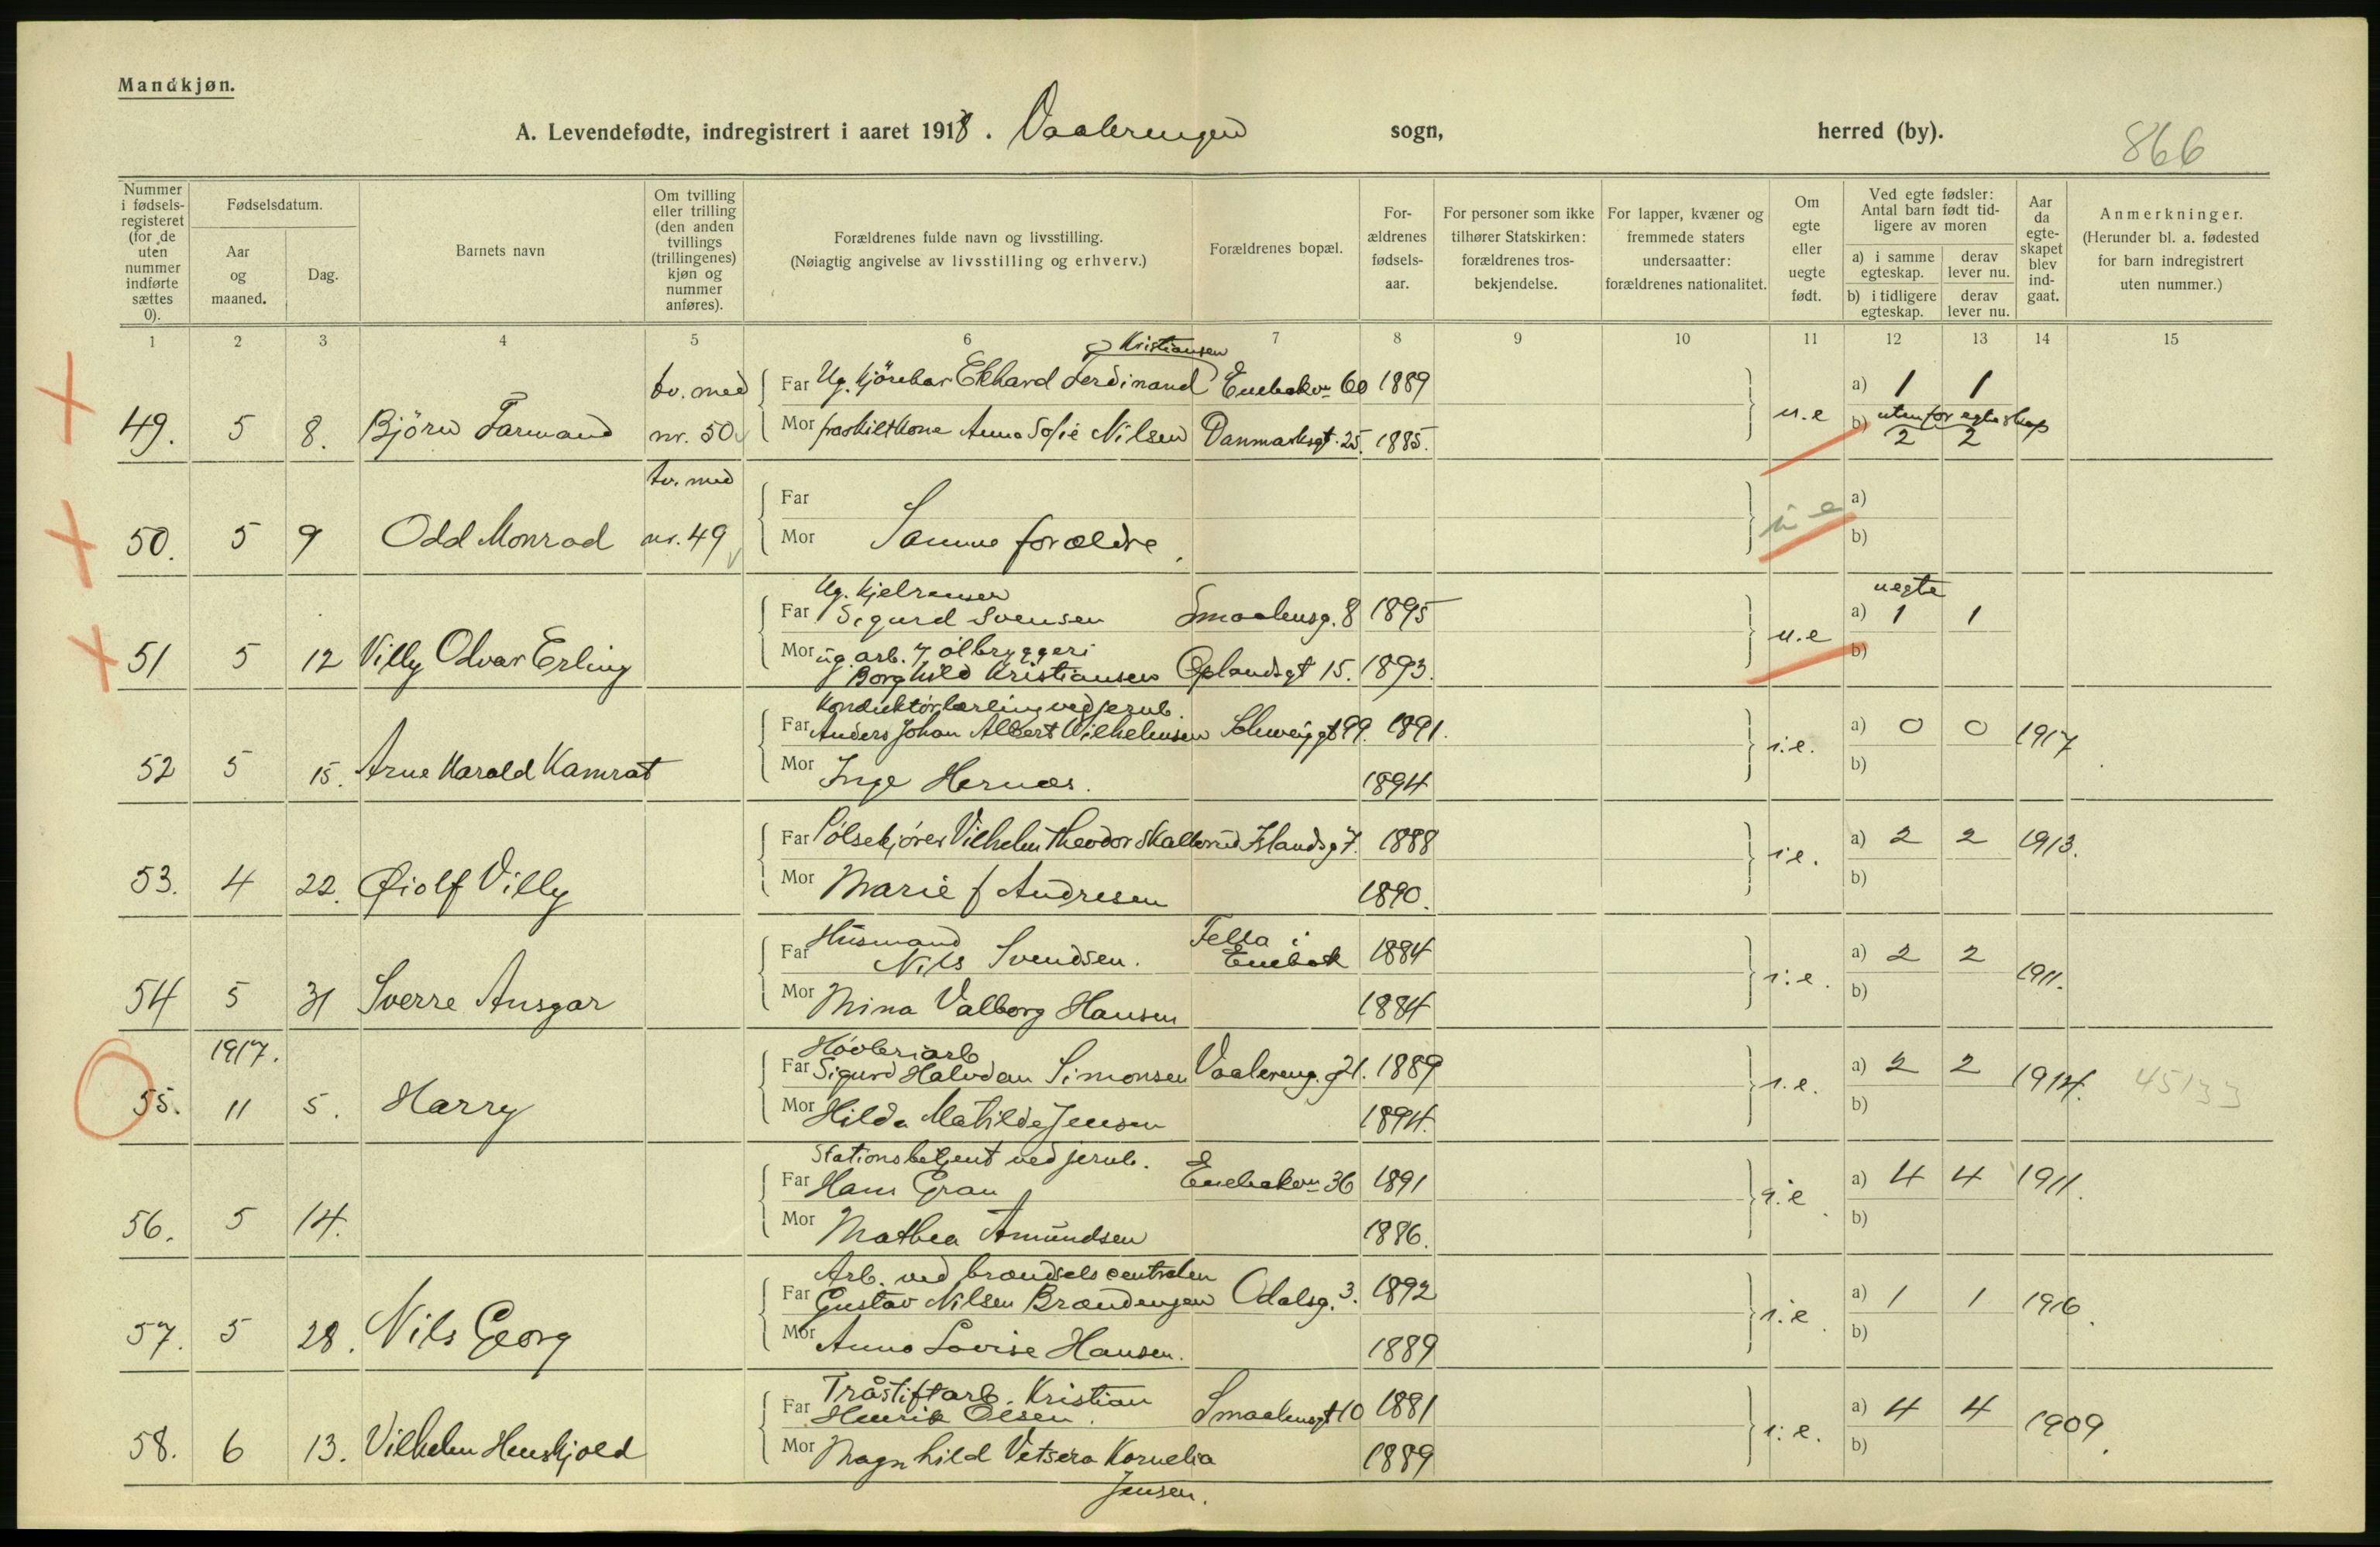 Mandkjøn.
A. Levendefødte, indregistrert i aaret 1918. Vaalerengen sogn, herred (by). 866
Nummer i fødsels-registeret (for de uten nummer indførte sættes 0).
Fødselsdatum.
Aar og maaned.
Dag.
Barnets navn
Om tvilling eller trilling (den anden tvillings (trillingenes) kjøn og nummer anføres).
Forældrenes fulde navn og livsstilling.
(Nøiagtig angivelse av livsstilling og erhverv.)
Forældrenes bopæl.
For-ældrenes fødsels-aar.
For personer som ikke tilhører Statskirken: forældrenes tros-bekjendelse.
For lapper, kvæner og fremmede staters undersaatter: forældrenes nationalitet.
Om egte eller uegte født.
Ved egte fødsler: Antal barn født tid-ligere av moren
a) i samme egteskap.
derav lever nu.
b) i tidligere egteskap.
derav lever nu.
Aar da egte-skapet blev ind-gaat.
Anmerkninger.
(Herunder bl. a. fødested for barn indregistrert uten nummer.)
1 2 3 4 5 6 7 8 9 10 11 12 13 14 15
Kristiansen
tv. med Far Ug. kjørekar Ekhard Ferdinand Enebakv 60 1889 a) 1 1
49. 5 8. Björn Farmand nr. 50 Mor fraskilt kone Anna Sofie Nilsen Danmarksgt. 25. 1885. u.e b) utenfor egteskap
2 2
tv. med Far a)
50. 5 9 Odd Monrad nr. 49 Mor Samme forældre. u e b)
Ug. Kjelrenser uegte
Far Sigurd Svensen Smaalensg. 8 1895 a) 1 1
51 5 12 Villy Odvar Erling Mor ug. arb. i ølbryggeri u.e b)
Borghild Kristiansen Oplandsgt 15. 1893.
Konduktørlærling ved jernb.
Far Anders Johan Albert Vilhelmsen Schweigg 99. 1891. a) 0 0 1917
52 5 15. Arne Harald Kamrat Mor Inge Hernæs. 1894 i.e. b)
Far Pølsekjører Vilhelm Theodor Skallerud Islandsg 7. 1888 a) 2 2 1913.
53. 4 22. Øiolf Villy Mor Marie f Andresen 1890. i.e. b)
Husmand
Far Nils Svendsen. i Enebak 1884 a) 2 2 1911.
54 5 31 Sverre Ansgar Mor Mina Valborg Hansen 1884 i.e. b)
1917. Høvleriarb
Far Sigurd Halvdan Simonsen Vaalereng. g 21. 1889 a) 2 2 1914. 45133
55. 11 5. Harry Mor Hilda Mathilde Jensen 1894. i.e. b)
Stationsbetjent ved jernb.
Far Hans Gran Enebakvn 36 1891 a) 4 4 1911.
56. 5 14. Mor Mathea Amundsen 1886. i.e. b)
Arb. ved brændselscentralen
Far Gustav Nilsen Brændengen Odalsg. 3. 1892 a) 1 1 1916.
57. 5 28. Nils Georg Mor Anna Lovise Hansen. 1889 i.e. b)
Tråstiftarb. Kristian
Far Henrik Olsen. Smaalensgt 10 1881 a) 4 4 1909.
58. 6 13. Vilhelm Henskjold Mor Magnhild Vetsera Kornelia 1889 i.e. b)
Jensen.